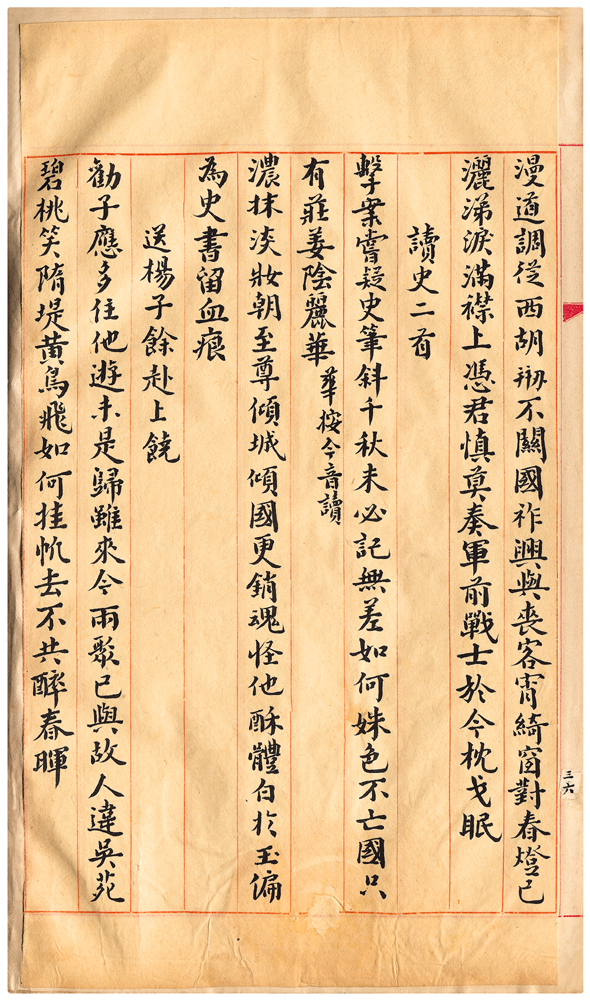 漫道調從西胡刱不關國祚興與喪客宵綺窗對春燈已
灑涕淚滿襟上憑君慎莫奏軍前戰士於今枕戈眠
讀史二首
擊案嘗疑史筆斜千秋未必記無差如何姝色不亡國只
有莊姜陰麗華華按今音讀
濃抹淡妝朝至尊傾城傾國更銷魂怪他酥體白於玉偏
為史書留血痕
送楊子餘赴上饒
勸子應多住他遊未是歸雖來今雨聚已與故人違吳苑
碧桃笑隋堤黃鳥飛如何挂帆去不共醉春暉
三六